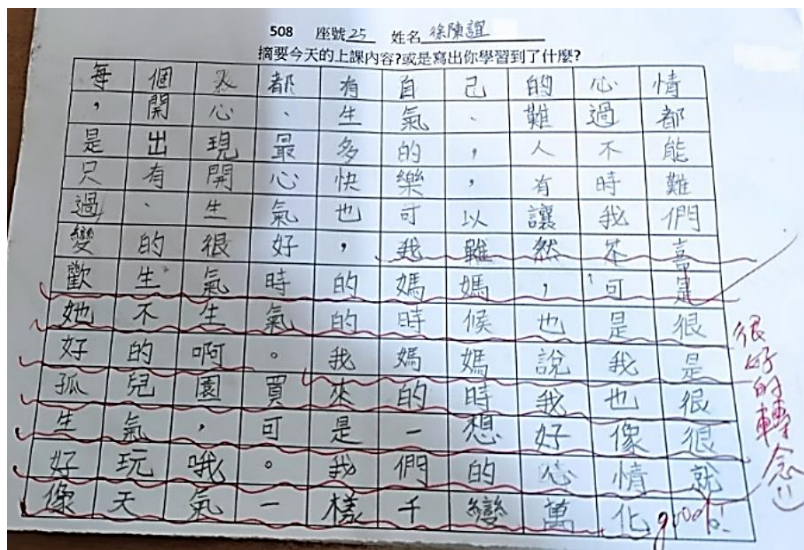 508 座號25 姓名徐陳誼
摘要今天的上課內容?或是寫出你學習到了什麼?
每個人都有自己的心情
，開心、生氣、難過都
是出現最多的，人不能
只有開心快樂，有時難
過、生氣也可以讓我們
變的很好，我雖然不喜
歡生氣時的媽媽，可是
她不生氣的時候也是很
好的啊。我媽媽說我是
孤兒園買來的時我也很
生氣，可是一想好像很
好玩哦。我們的心情就
像天氣一樣千變萬化
good!
很好的轉念